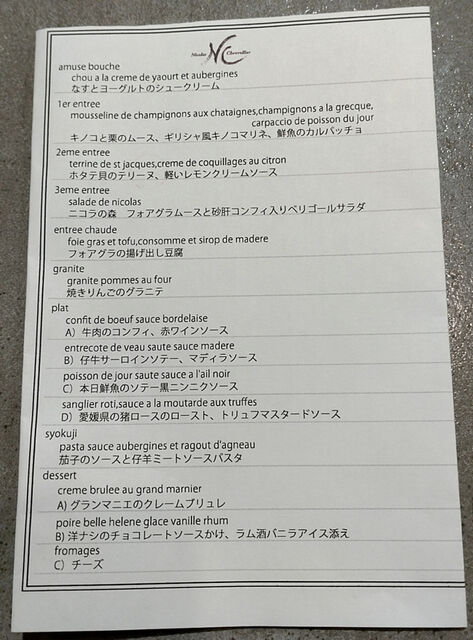 Nicolas NC Chevrollier
amuse bouche
chou a la creme de yaourt et aubergines
なすとヨーグルトのシュークリーム
1er entree
mousseline de champignons aux chataignes,champignons a la grecque,
carpaccio de poisson du jour
キノコと栗のムース、ギリシャ風キノコマリネ、鮮魚のカルパッチョ
2eme entree
terrine de st jacques,creme de coquillages au citron
ホタテ貝のテリーヌ、軽いレモンクリームソース
3eme entree
salade de nicolas
ニコラの森 フォアグラムースと砂肝コンフィ入りペリゴールサラダ
entree chaude
foie gras et tofu,consomme et sirop de madere
フォアグラの揚げ出し豆腐
granite
granite pommes au four
焼きりんごのグラニテ
plat
confit de boeuf sauce bordelaise
A）牛肉のコンフィ、赤ワインソース
entrecote de veau saute sauce madere
B）仔牛サーロインソテー、マディラソース
poisson de jour saute sauce a l'ail noir
C）本日鮮魚のソテー黒ニンニクソース
sanglier roti,sauce a la moutarde aux truffes
D）愛媛県の猪ロースのロースト、トリュフマスタードソース
syokuji
pasta sauce aubergines et ragout d'agneau
茄子のソースと仔羊ミートソースパスタ
dessert
creme brulee au grand marnier
A) グランマニエのクレームブリュレ
poire belle helene glace vanille rhum
B) 洋ナシのチョコレートソースかけ、ラム酒バニラアイス添え
fromages
C）チーズ